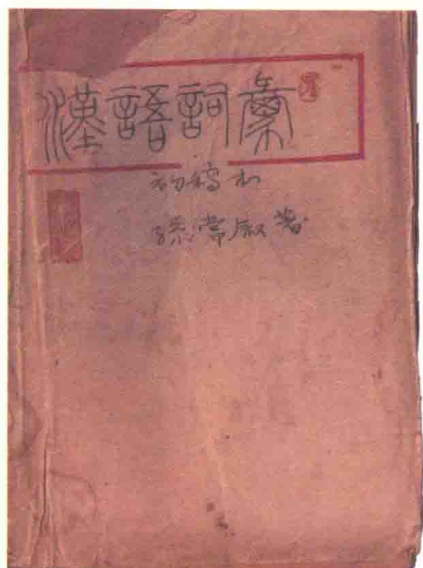 漢語詞彙
初稿本
孫常叙著